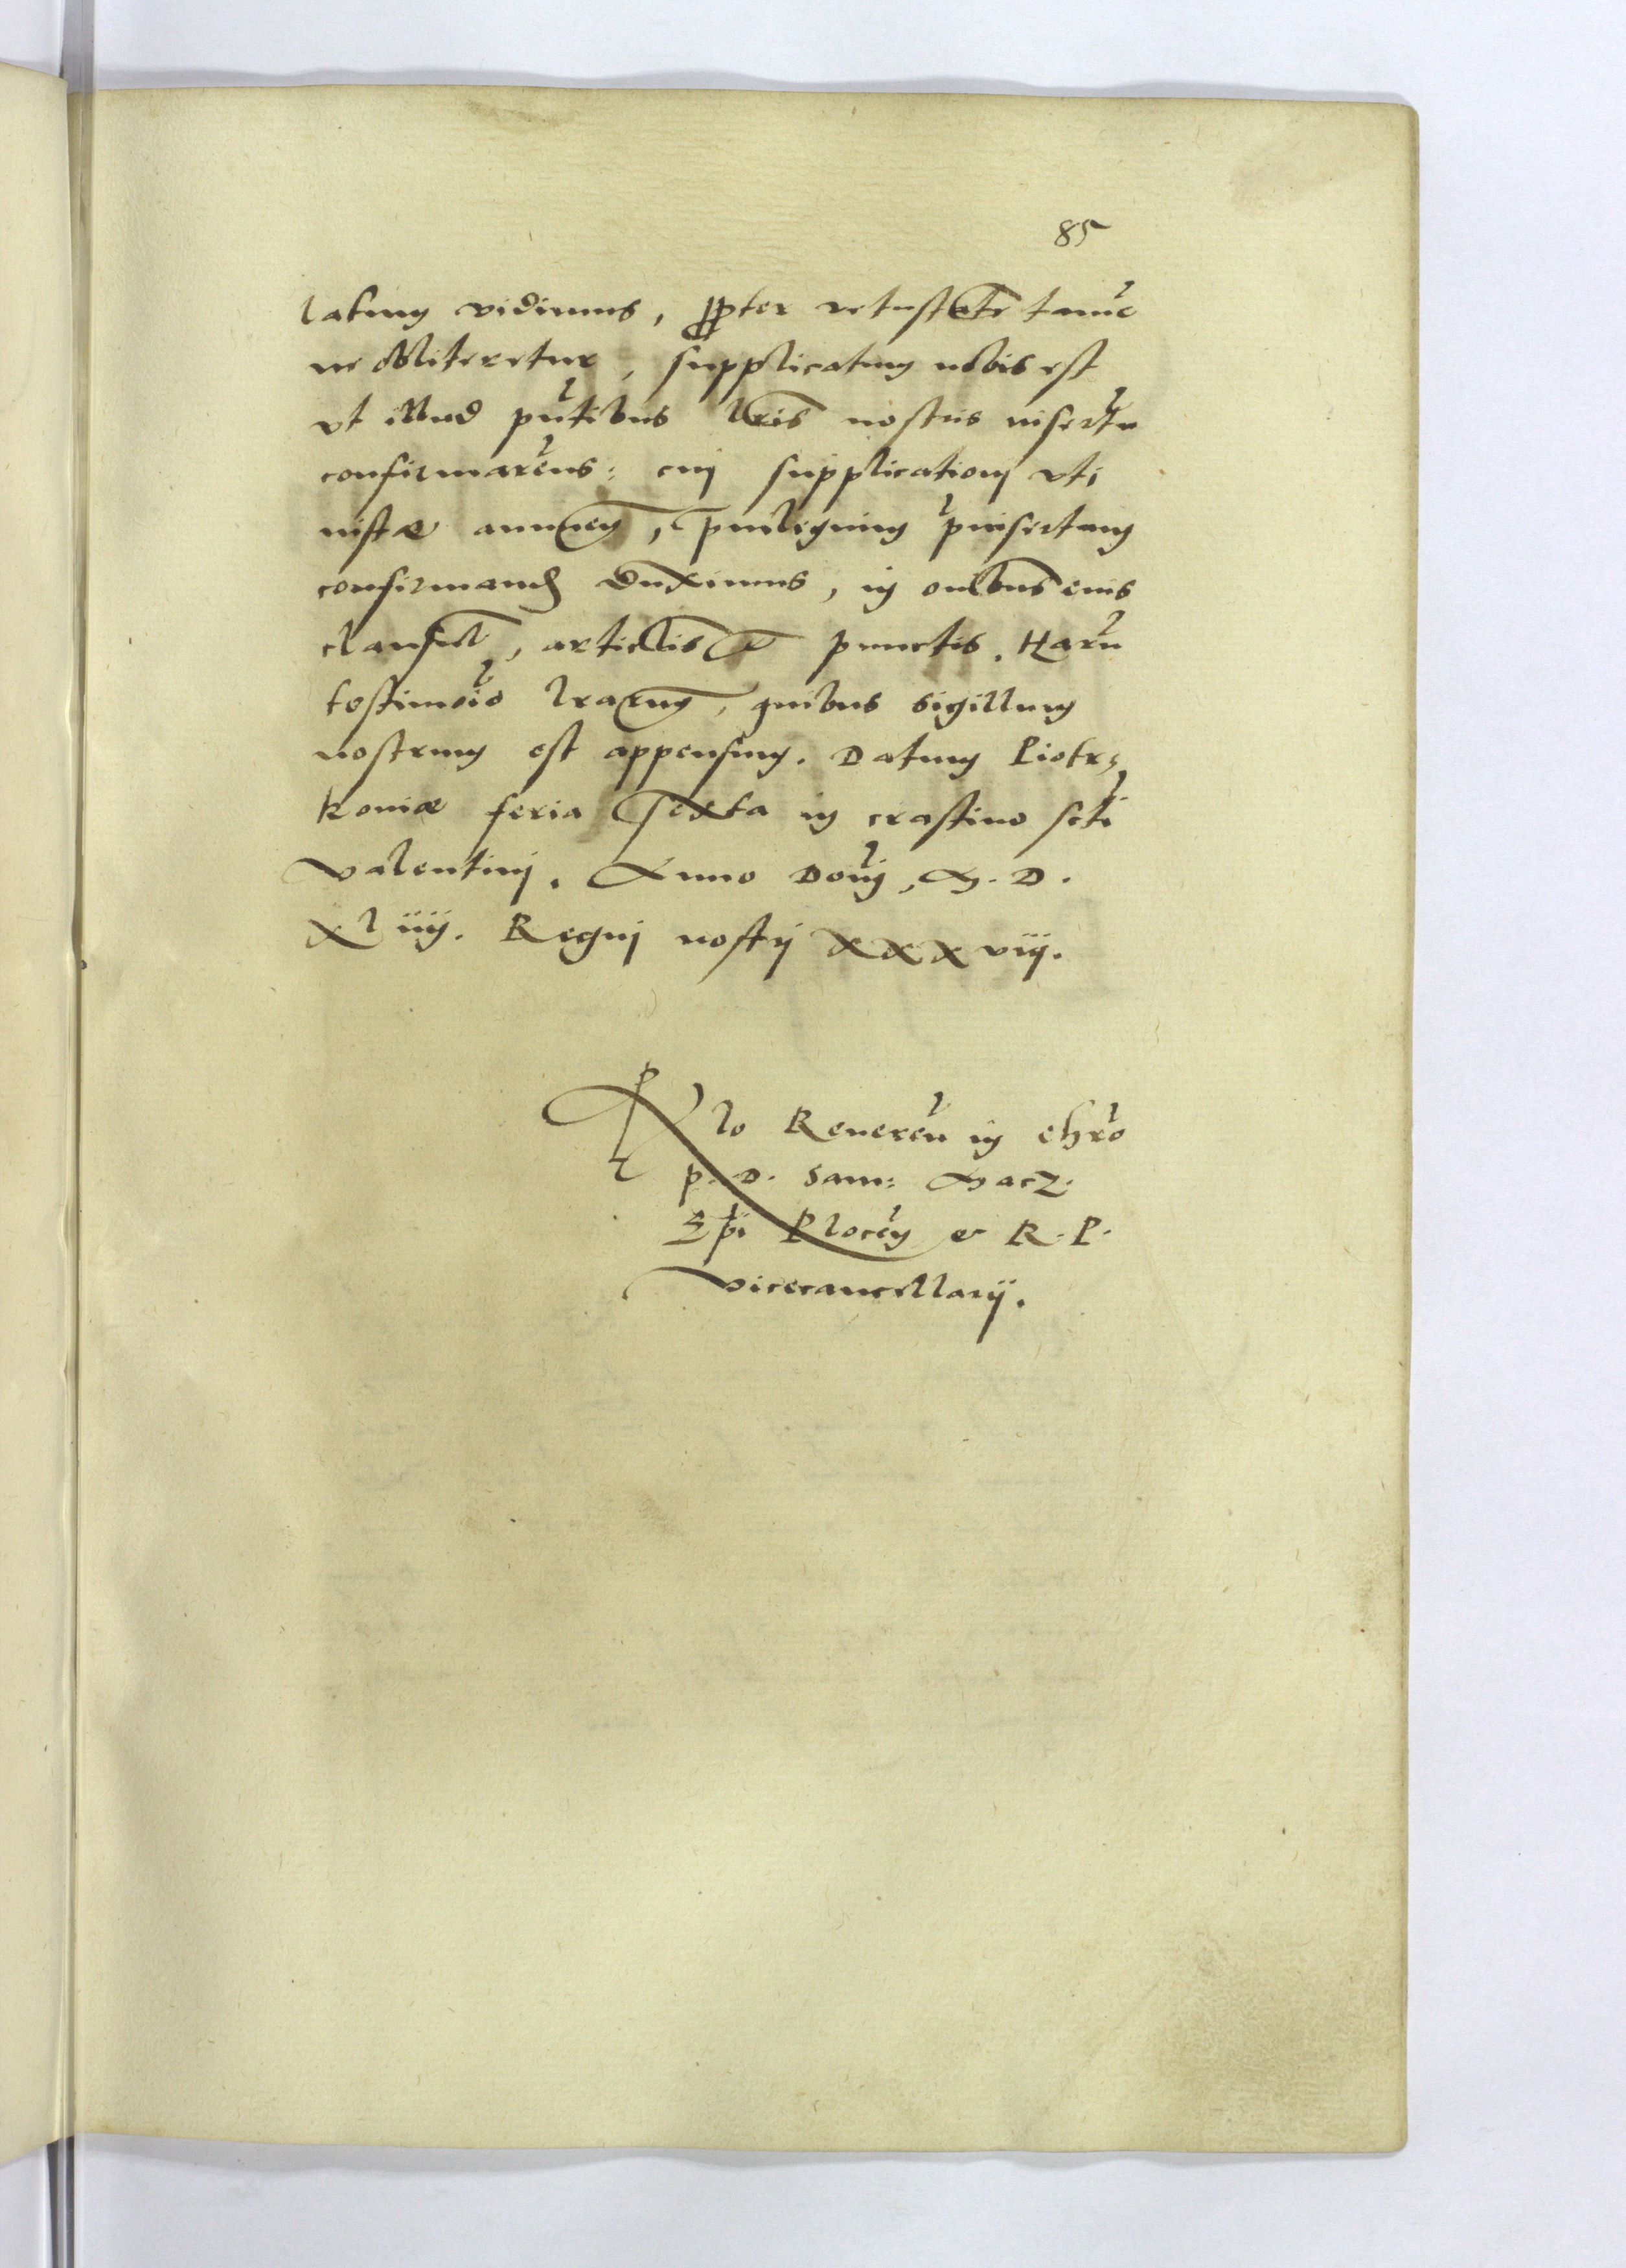 85
latum vidimus, propter vetustate tamē
ne obliteretur, supplicatum nobis est
vt illud pn̄tibus lr̄is nostris insertū
confirmarem̄s: cuj supplicationj vti
iustæ annuen̄, priuilegium p̄insertum
confirmand duximus, in oībus eius
clausul̄, articlis et punctis. Harū
testimōio lrarum, quibus sigillum
nostrum est appensum. Datum Piotr⸗
kouiæ feria sexta in crastino scti
Valentinj. Anno Domj, M. D.
xliiij. Regnj nostrj xxxviij.
Rlo Reueren̄ in chrō
p. D. Sam: Macz.
Ep̄i Plocēn et R. P.
Vicecancellarij.